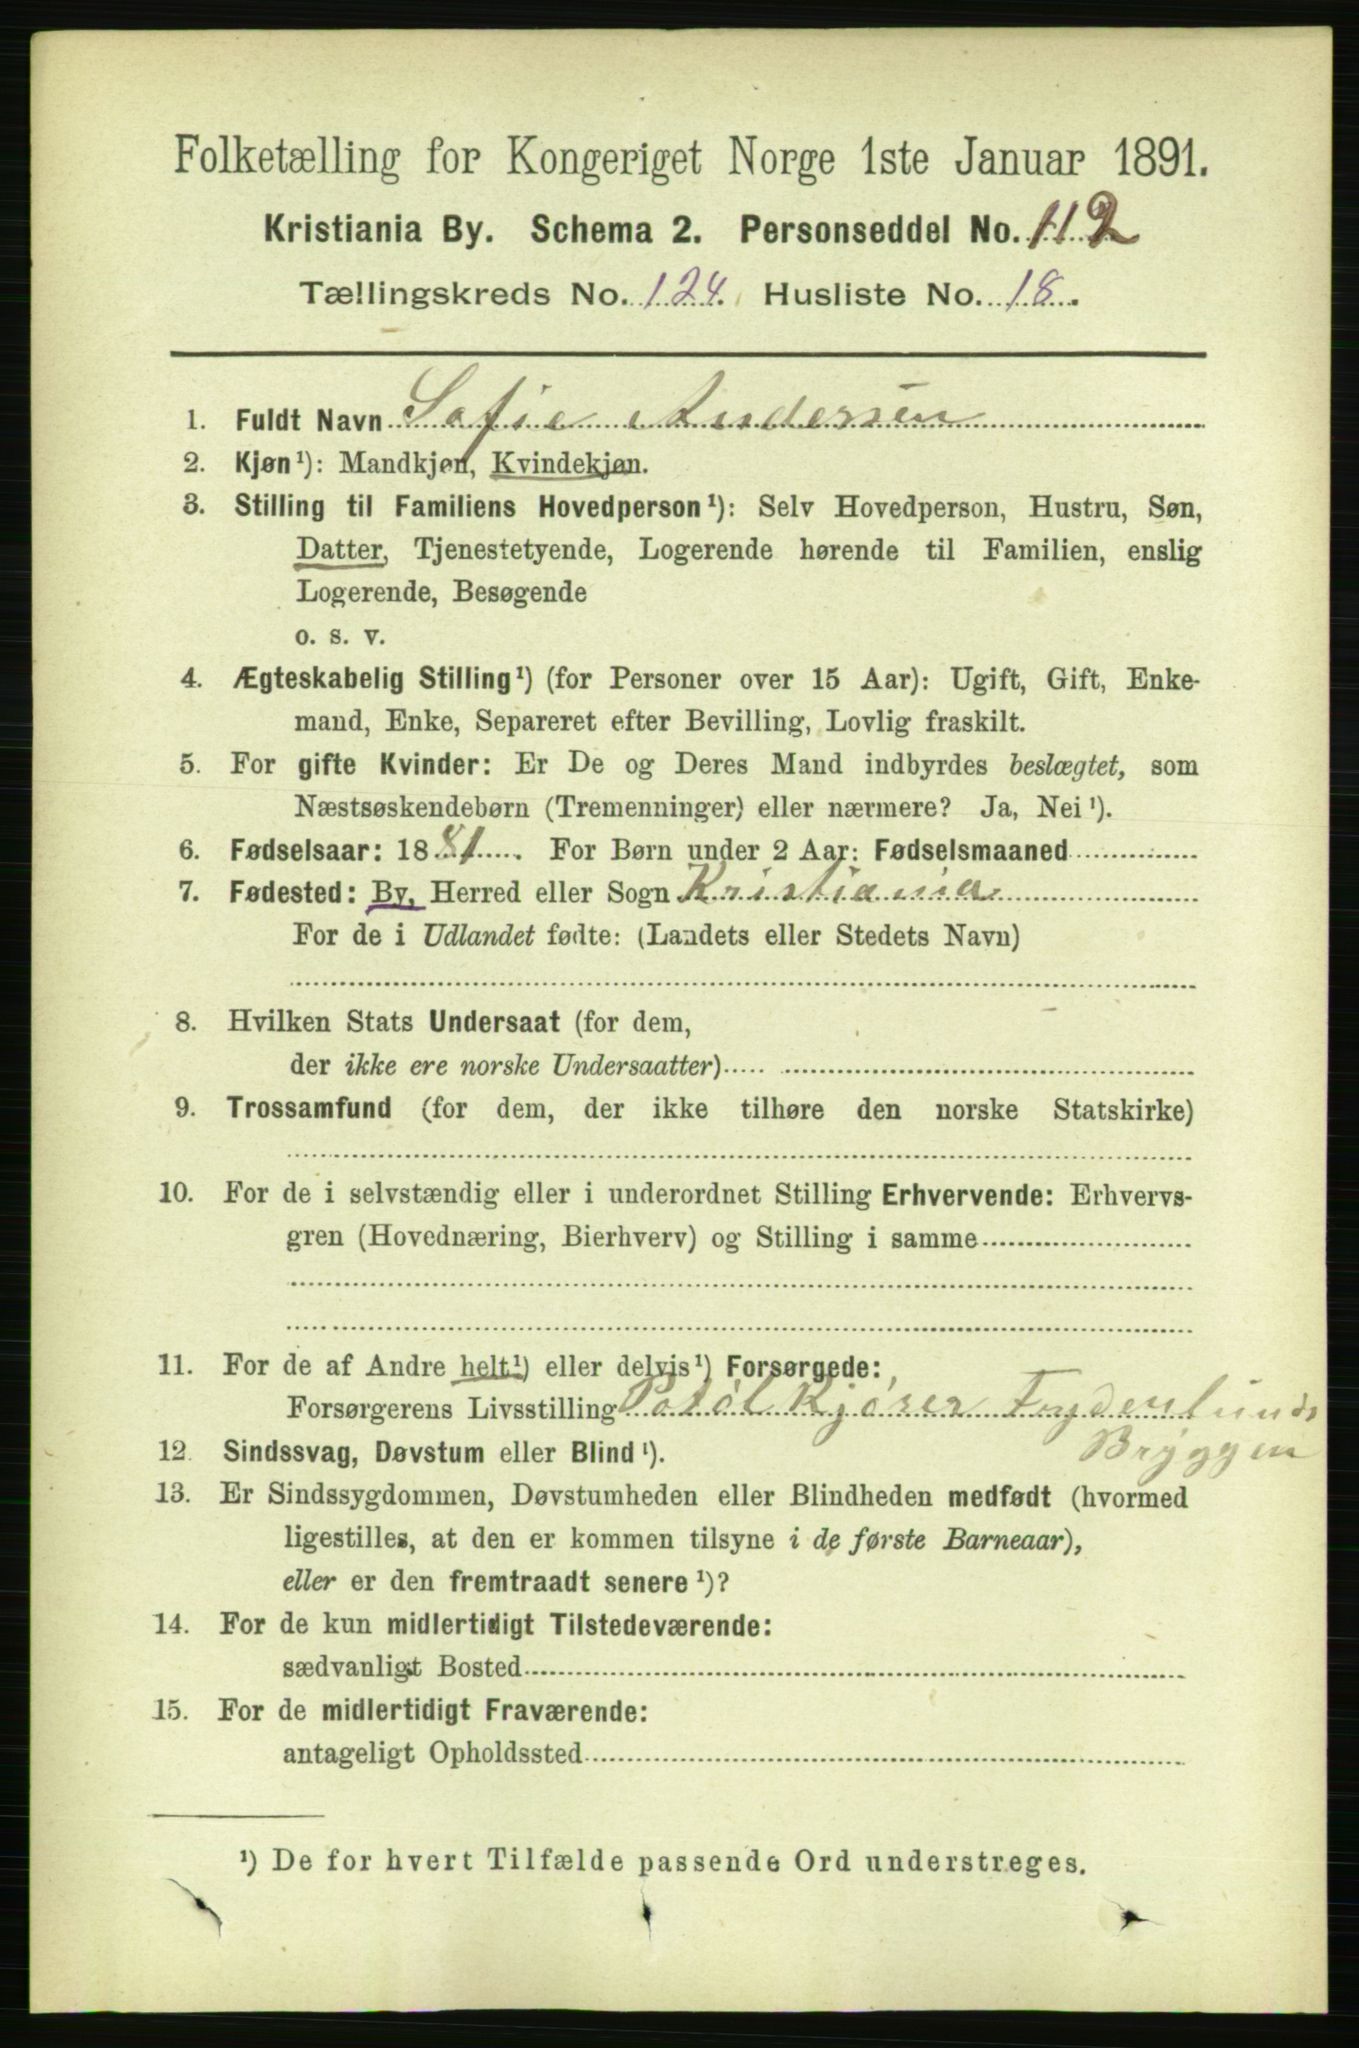 Folketælling for Kongeriget Norge 1ste Januar 1891.
Kristiania By. Schema 2. Personseddel No. 112
Tællingskreds No. 124. Husliste No. 18.
1. Fuldt Navn Sofie Andersen
2. Kjøn¹): Mandkjøn, Kvindekjøn.
3. Stilling til Familiens Hovedperson¹): Selv Hovedperson, Hustru, Søn,
Datter, Tjenestetyende, Logerende hørende til Familien, enslig
Logerende, Besøgende
o. s. v.
4. Ægteskabelig Stilling¹) (for Personer over 15 Aar): Ugift, Gift, Enke-
mand, Enke, Separeret efter Bevilling, Lovlig fraskilt.
5. For gifte Kvinder: Er De og Deres Mand indbyrdes beslægtet, som
Næstsøskendebørn (Tremenninger) eller nærmere? Ja, Nei¹).
6. Fødselsaar: 1881. For Børn under 2 Aar: Fødselsmaaned
7. Fødested: By, Herred eller Sogn Kristiania
For de i Udlandet fødte: (Landets eller Stedets Navn)
8. Hvilken Stats Undersaat (for dem,
der ikke ere norske Undersaatter)
9. Trossamfund (for dem, der ikke tilhøre den norske Statskirke)
10. For de i selvstændig eller i underordnet Stilling Erhvervende: Erhvervs-
gren (Hovednæring, Bierhverv) og Stilling i samme
11. For de af Andre helt¹) eller delvis¹) Forsørgede:
Forsørgerens Livsstilling Kjører Frydenlunds
Bryggeri
12. Sindssvag, Døvstum eller Blind¹).
13. Er Sindssygdommen, Døvstumheden eller Blindheden medfødt (hvormed
ligestilles, at den er kommen tilsyne i de første Barneaar),
eller er den fremtraadt senere¹)?
14. For de kun midlertidigt Tilstedeværende:
sædvanligt Bosted
15. For de midlertidigt Fraværende:
antageligt Opholdssted
¹) De for hvert Tilfælde passende Ord understreges.